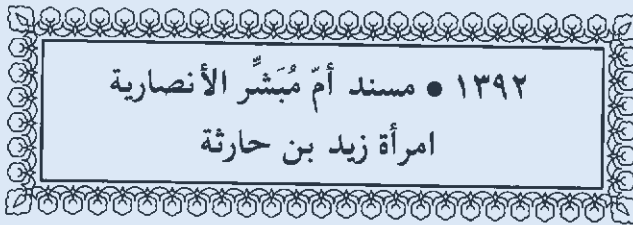 ١٣٩٢ ● مسند أمّ مُبَشِّر الأنصارية
امرأة زيد بن حارثة